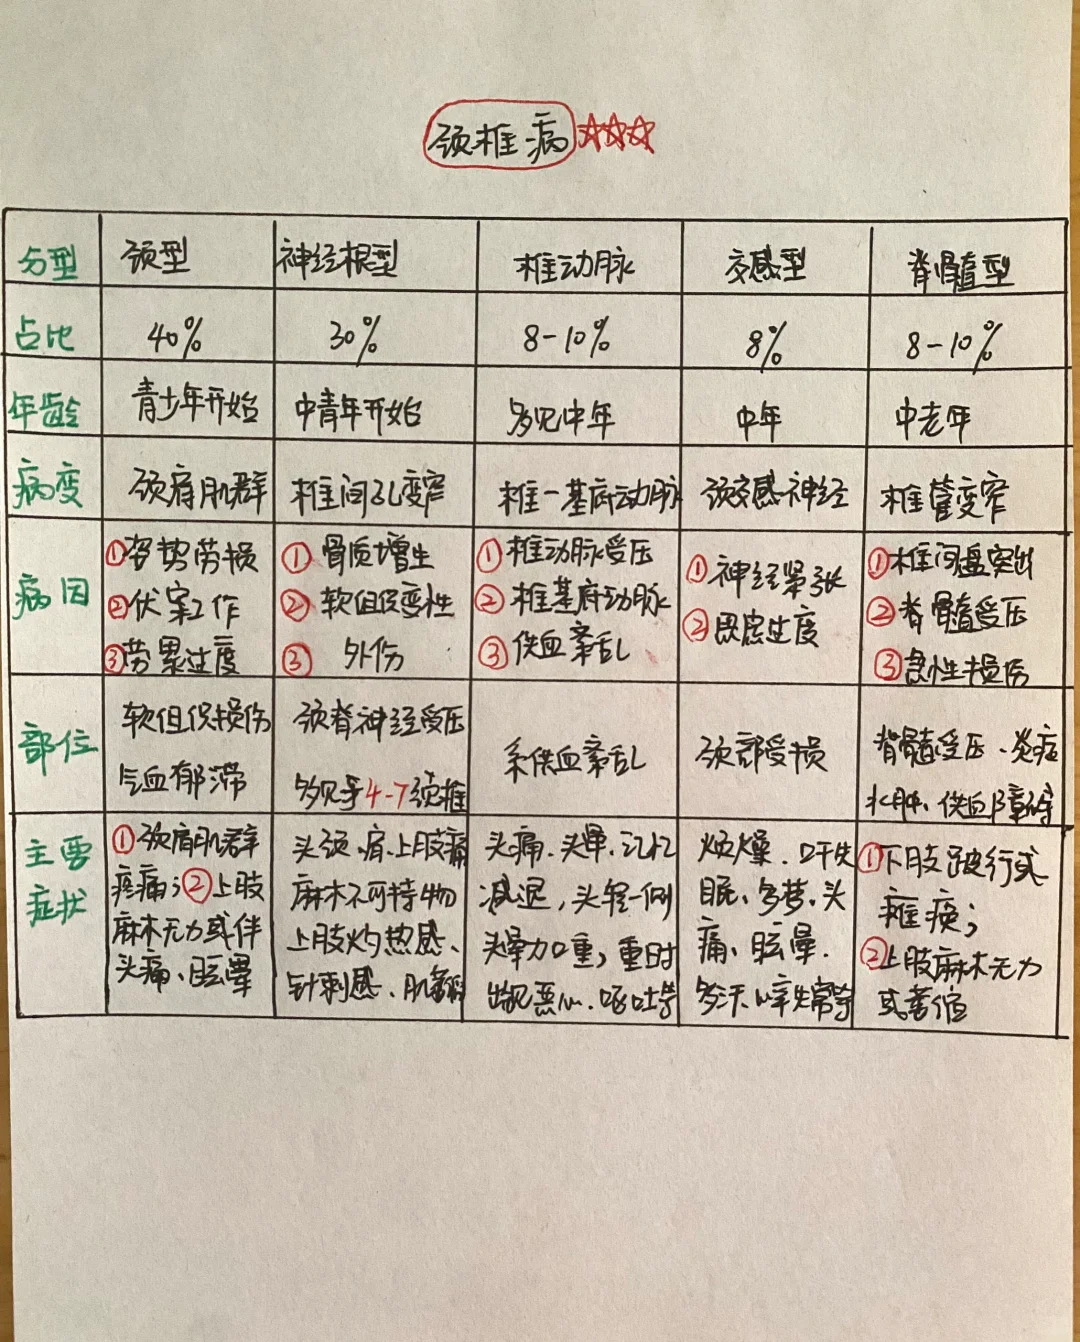 颈椎病
分型 颈型 神经根型 椎动脉 交感型 脊髓型
占比 40% 30% 8-10% 8% 8-10%
年龄 青少年开始 中青年开始 多见中年 中年 中老年
病变 颈肩肌群 椎间孔变窄 椎一基底动脉 颈交感神经 椎管变窄
病因
①姿势劳损
②伏案工作
③劳累过度
①骨质增生
②软组织变性
③外伤
①椎动脉受压
②椎基底动脉
③供血紊乱
①神经紧张
②思虑过度
①椎间盘突出
②脊髓受压
③急性损伤
部位
软组织损伤
气血郁滞
颈脊神经受压
多见于4-7颈椎
系供血紊乱
颈部受损
脊髓受压、炎症
水肿、供血障碍
主要
症状
①颈肩肌群
疼痛;②上肢
麻木无力或伴
头痛、眩晕
头、颈、肩、上肢痛
麻木不可持物
上肢灼热感、
针刺感、肌萎缩
头痛、头晕、记忆
减退,头转一侧
头晕加重,重时
出现恶心、呕吐等
烦燥、失
眠、多梦、头
痛、眩晕、
多汗、失常等
①下肢跛行或
瘫痪;
②上肢麻木无力
或萎缩